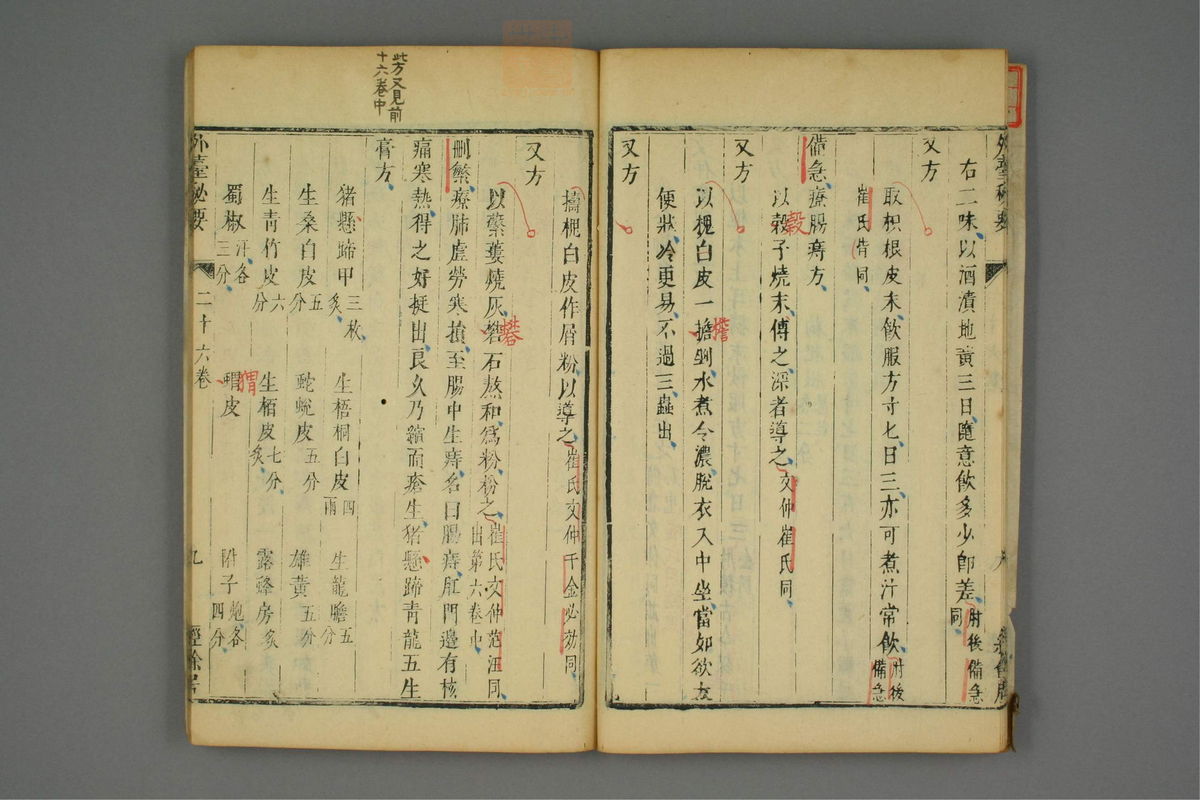 右二味以酒漬地黃三日隨意飲多少即差肘後備急同
又方
取枳根皮末飲服方寸匕日三亦可煮汁常飲肘後備急
崔氏背同
備急療腸痔方
以榖子燒末傅之深者導之文仲崔氏同
又方
以槐白皮一擔剉水煮令濃脫衣入中坐當如欲大
便狀冷更易不過三蟲出
又方
穀
擔
擣槐白皮作屑粉以導之崔氏文仲千金必効同
又方
以蔾蔞燒灰礬石熬和為粉粉之崔氏文仲范汪同出第六卷中
刪繁療肺虛勞寒損至腸中生痔名曰腸痔肛門邊有核
痛寒熱得之好挺出良久乃縮而瘡生猪懸蹄青龍五生
膏方
猪懸蹄甲三枚炙 生梧桐白皮四兩 生龍膽五分
生桑白皮五分 蛇蛻皮五分 雄黃五分
生青竹皮六分 生栢皮七分炙 露蜂房炙
蜀椒汗各三分 蝟皮 附子炮各四分
外臺秘要 二十六卷 九 經餘居
礬
猬
此方又見前
十六卷中
外臺秘要